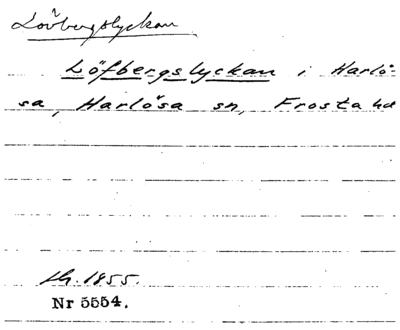 Lövbergslyckan
Löfbergslyckan i Harlö-
sa, Harlösa sn, Frosta hd
1855.
Nr 5554.